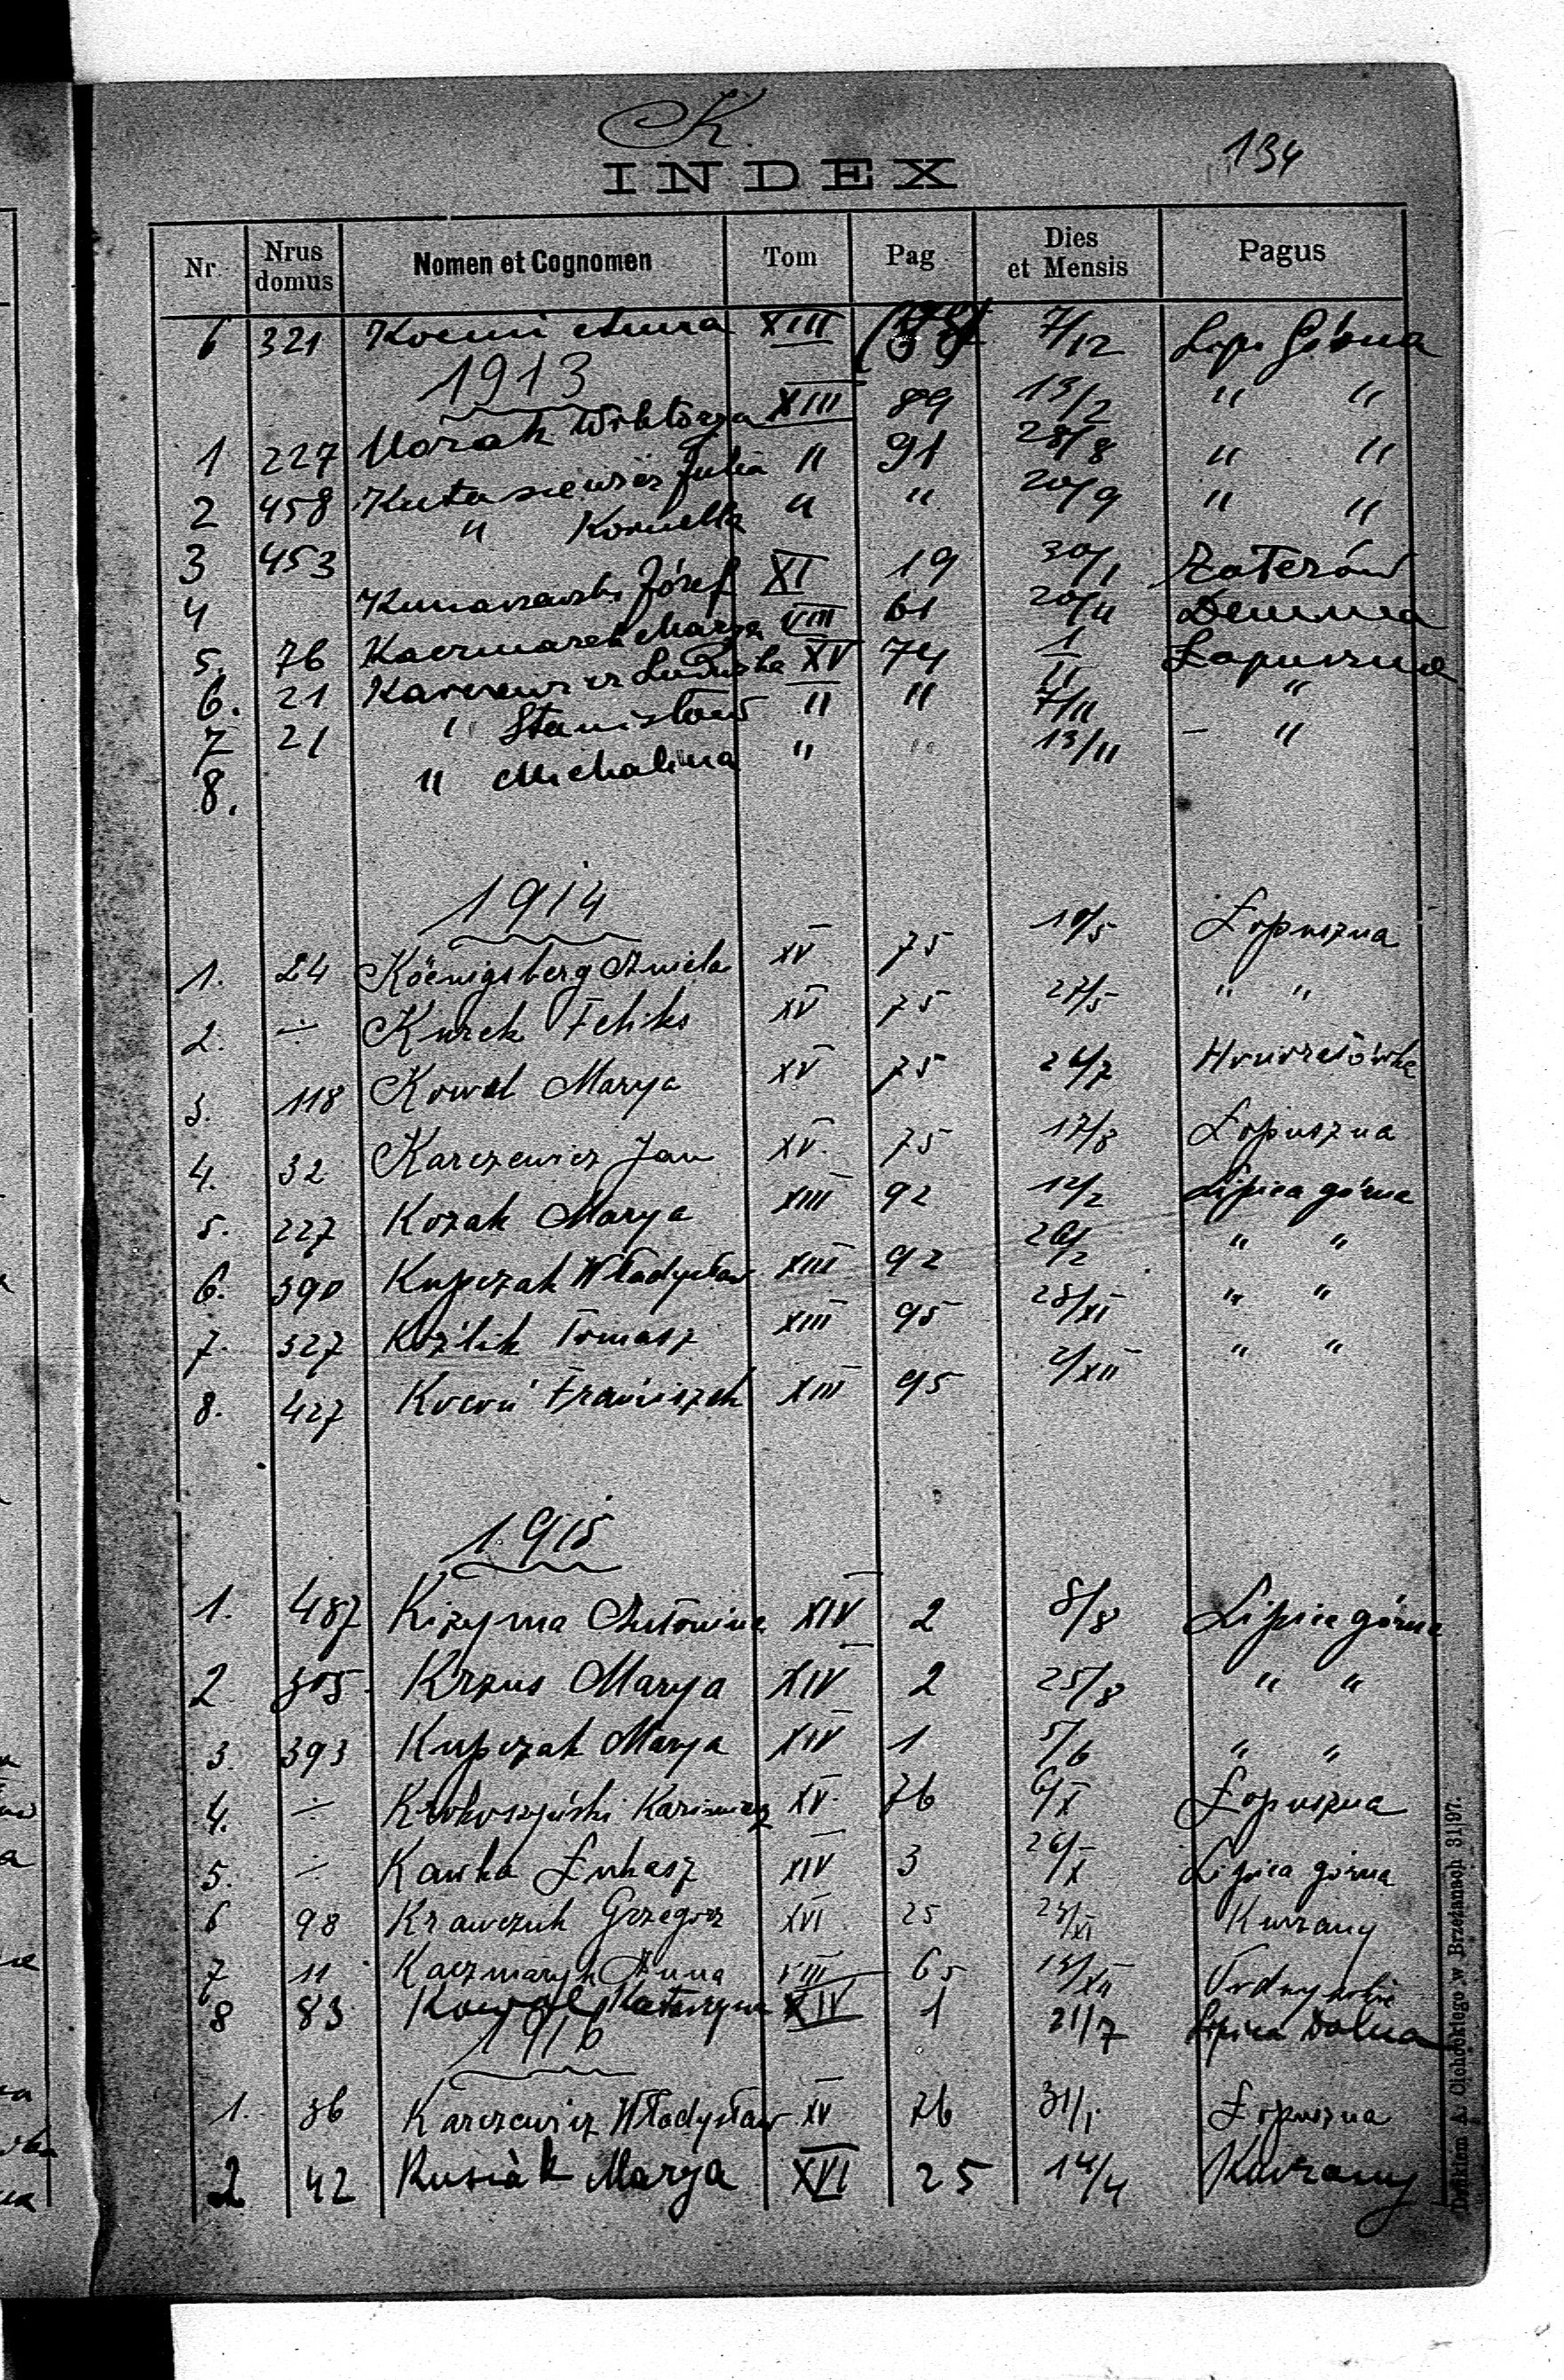 K.
134
INDEX
Nr. Nrus domus Nomen et Cognomen Tom Pag. Dies et Mensis Pagus
6 321 Anna XIII 7/12 Lip. Górna
1913
1 227 Wiktorya XIII 89 13/2 " "
2 458 Kutasiewicz Julia " 91 28/8 " "
3 453 " Kornella " " 20/9 " "
4 Józef XI 19 30/1
5. 76 Kaczmarek Marya VIII 61 20/11 Demnia
6. 21 Karczewicz Ludwika XV 74 1/II Łopuszna
7 21 " Stanisław " " 7/II "
8. " Michalina " " 13/II – "
1914
1. 24 Köenigsberg Aniela XV 75 10/5 Łopuszna
2. ÷ Kurek Feliks XV 75 27/5 " "
3. 118 Kowal Marya XV 75 26/7
4. 32 Karczewicz Jan XV. 75 17/8 Łopuszna
5. 227 Kozak Marya XIII 92 12/2 Lipica górna
6. 390 Kupczak Władysław XIII 92 26/2 " "
7. 327 Koźlik Tomasz XIII 95 28/XI " "
8. 427 Kocoń Franciszek XIII 95 2/XII " "
1915
1. 487 Kizyma Antonina XIV 2 8/8 Lipica górna
2 305. Krzus Marya XIV 2 25/8 " "
3. 393 Kupczak Marya XIV 1 5/6 " "
4. ÷ Krokoszyński Kazimierz XV. 76 6/X Łopuszna
5. ÷ Kawka Łukasz XIV 3 26/X Lipica górna
6 98 Krawczuk Grzegorz XVI 25 23/XI Kurzany
7 11 Kaczmaryk Anna VIII 65 13/XII
8 83 Kowal Katarzyna XIV 1 21/7 Lipica Dolna
1916
1. 36 Karczewicz Władysław XV 76 31/1. Łopuszna
2 42 Kusiak Marya XVI 25 14/4 Kurzany
Drukiem A. Olchockiego w Brzeżanach 31|97.